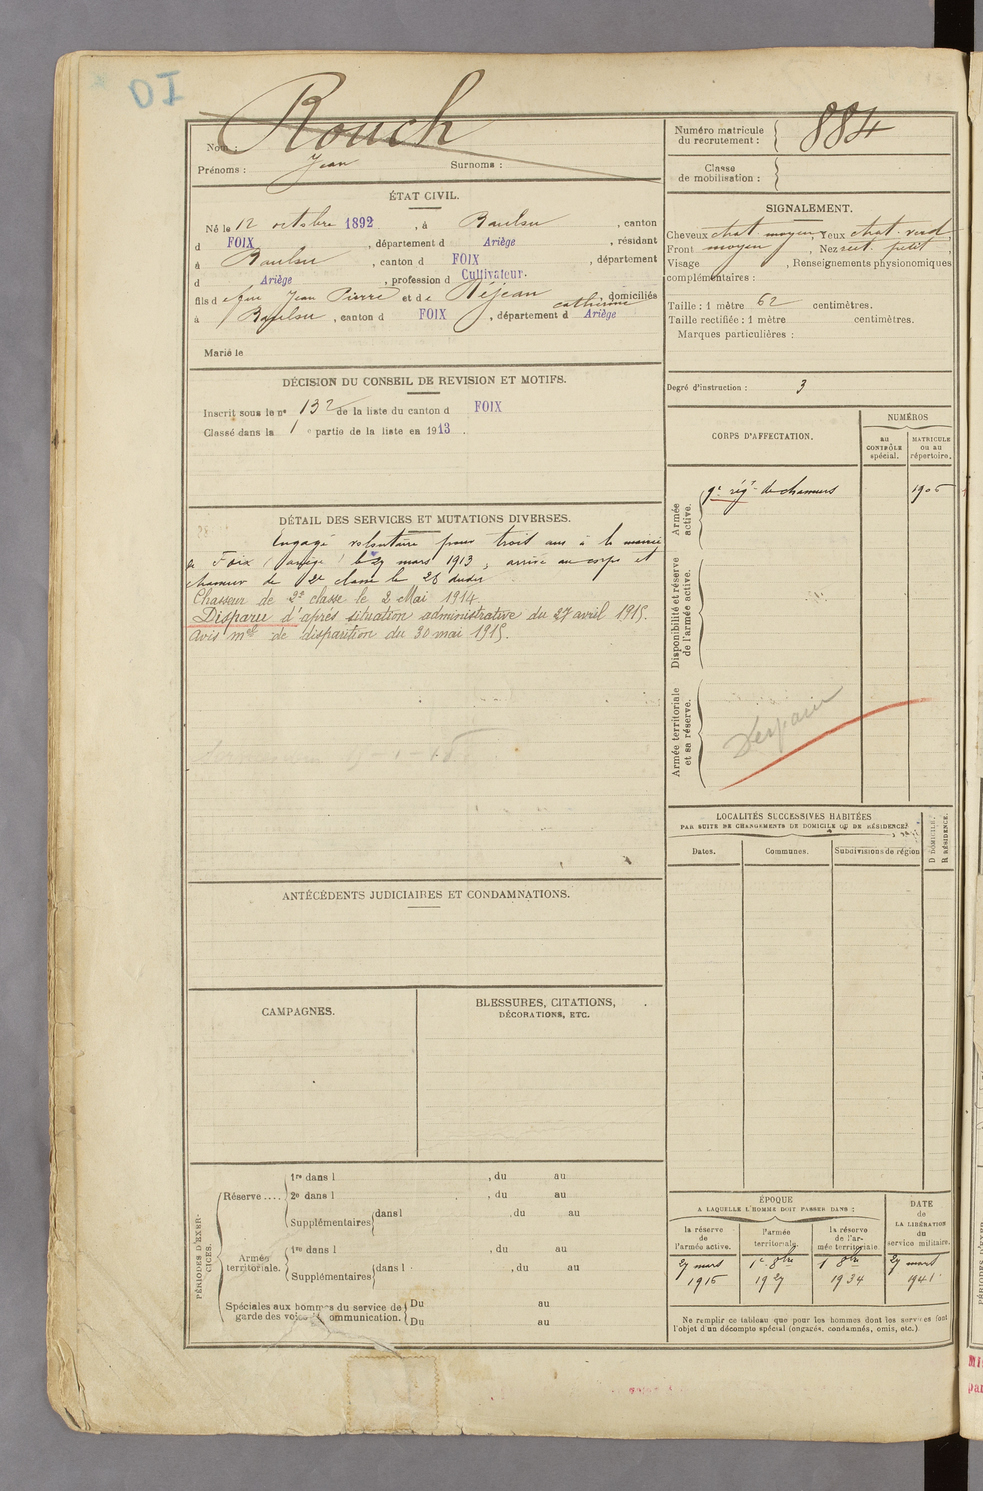 DI
Rouch
Nom :
Prénoms : Jean Surnoms :
Numéro matricule du recrutement : 884
Classe de mobilisation :
ÉTAT CIVIL.
Né le 12 octobre 1892, à Baulou, canton
d FOIX, département d Ariège, résidant
à Baulou, canton d FOIX, département
d Ariège, profession d Cultivateur.
fils de feu Jean Pierre et de Déjean catherine, domiciliés
à Baulou, canton d FOIX, département d Ariège
Marié le
SIGNALEMENT.
Cheveux chat. moyen, Yeux chat. verd,
Front moyen, Nez rect. petit,
Visage , Renseignements physionomiques
complémentaires :
Taille : 1 mètre 62 centimètres.
Taille rectifiée : 1 mètre centimètres.
Marques particulières :
Degré d'instruction : 3
DÉCISION DU CONSEIL DE REVISION ET MOTIFS.
Inscrit sous le n° 132 de la liste du canton d FOIX
Classé dans la 1 e partie de la liste en 1913.
DÉTAIL DES SERVICES ET MUTATIONS DIVERSES.
Engagé volontaire pour trois ans à la mairie
de Foix (ariège) le 27 mars 1913, arrivé au corps et
chasseur de 2e classe le 28 dudit
Chasseur de 2e classe le 2 Mai 1914.
Disparu d'après situation administrative du 27 avril 1915.
Avis mel de disparition du 30 mai 1915.
CORPS D'AFFECTATION.
NUMÉROS
au CONTRÔLE spécial.
MATRICULE ou au répertoire.
Armée active.
9e régt de chasseurs 1906
Disponibilité et réserve de l'armée active.
Armée territoriale et sa réserve.
LOCALITÉS SUCCESSIVES HABITÉES
PAR SUITE DE CHANGEMENTS DE DOMICILE OU DE RÉSIDENCE.
Dates.
Communes.
Subdivisions de région
D DOMICILE.
R RÉSIDENCE.
ANTÉCÉDENTS JUDICIAIRES ET CONDAMNATIONS.
CAMPAGNES.
BLESSURES, CITATIONS,
DÉCORATIONS, ETC.
PÉRIODES D'EXERCICES.
Réserve....
1re dans l , du au
2e dans l , du au
Supplémentaires dans l , du au
Armée territoriale.
1re dans l , du au
Supplémentaires dans l , du au
Spéciales aux hommes du service de
garde des voies de communication.
Du au
Du au
ÉPOQUE
A LAQUELLE L'HOMME DOIT PASSER DANS :
la réserve de l'armée active.
l'armée territoriale.
la réserve de l'armée territoriale.
DATE de LA LIBÉRATION du service militaire.
27 mars 1916
1er 8bre 1927
1 8bre 1934
27 mars 1941
Ne remplir ce tableau que pour les hommes dont les services font
l'objet d'un décompte spécial (engagés, condamnés, omis, etc.).